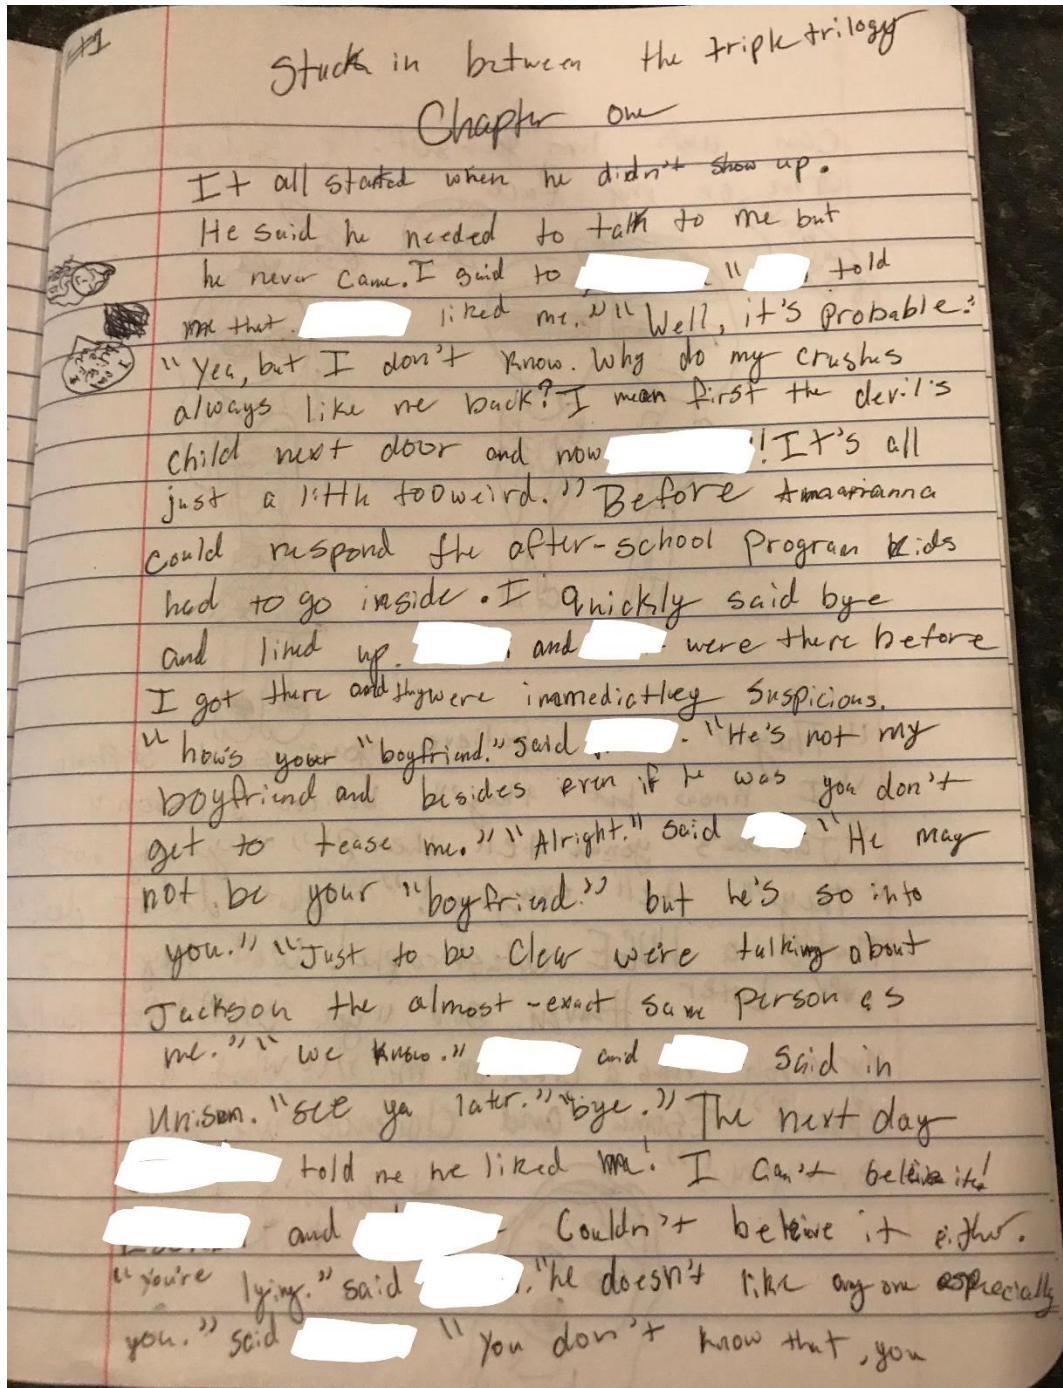 #1
Stuck in between the triple trilogy
Chapter one
It all started when he didn't show up.
He said he needed to talk to me but
he never came. I said to " told
me that liked me." "Well, it's probable."
"Yea, but I don't know. Why do my crushes
always like me back? I mean first the devil's
child next door and now ! It's all
just a little too weird." Before Amaarianna
could respond the after-school program kids
had to go inside. I quickly said bye
and lined up. and were there before
I got there and they were immediatley suspicious.
"how's your "boyfriend." said . "He's not my
boyfriend and besides even if he was you don't
get to tease me." "Alright." said "He may
not be your "boyfriend." but he's so into
you." "Just to be clear we're talking about
Jackson the almost-exact same person as
me." "we know." and said in
unison. "see ya later." "bye." The next day
told me he liked me! I can't beleive it!
and couldn't beleive it either.
"you're lying." said . "he doesn't like anyone especially
you." said "You don't know that, you